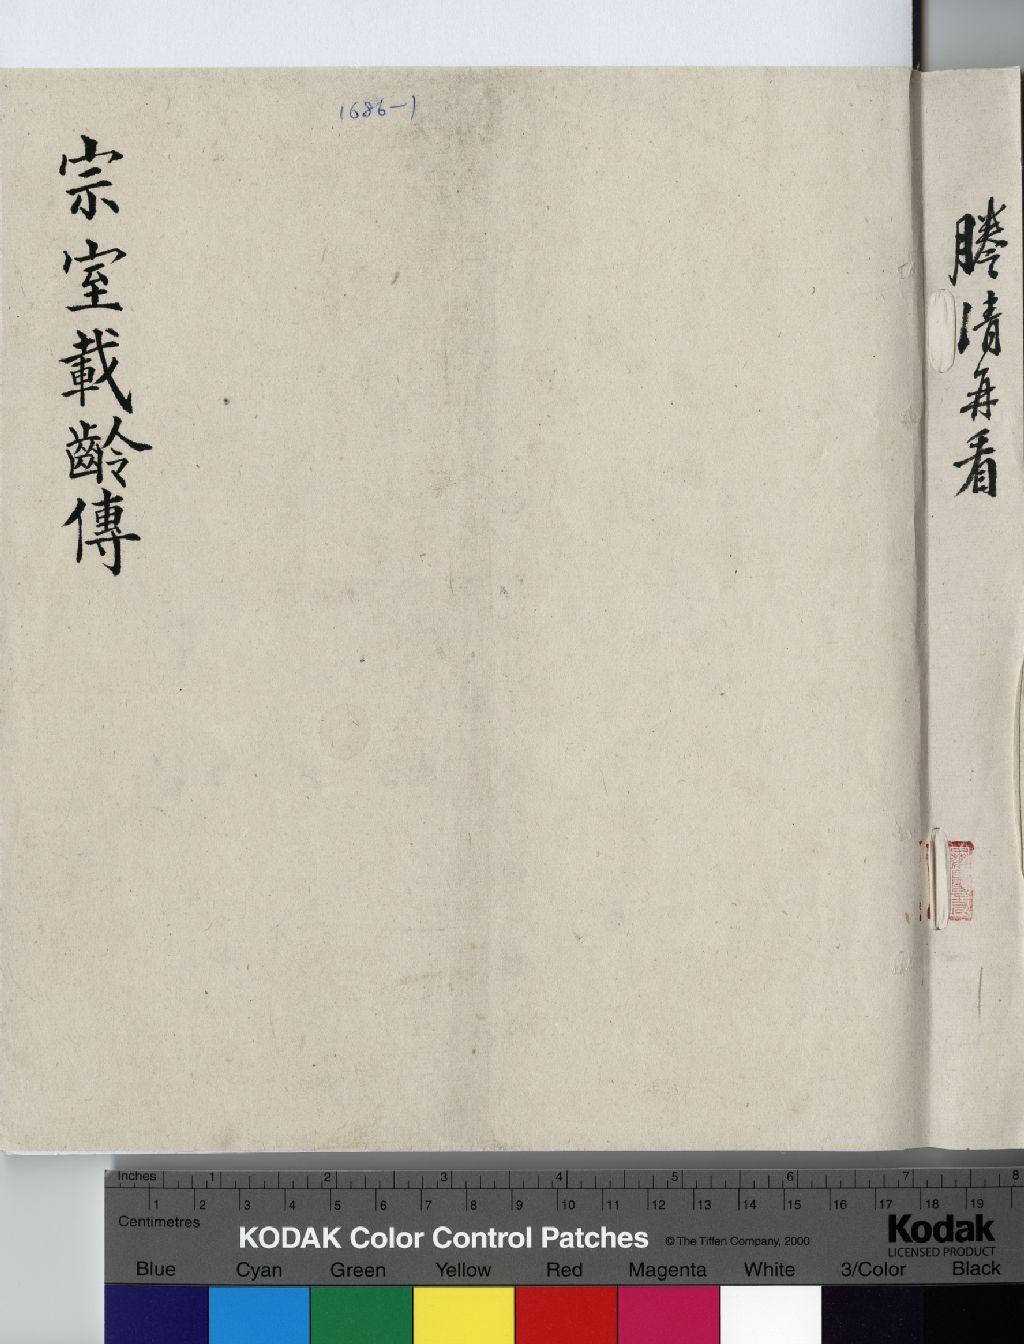 謄清再看
1686-1
宗室載齡傳
Inches 1 2 3 4 5 6 7 8
1 2 3 4 5 6 7 8 9 10 11 12 13 14 15 16 17 18 19
Centimetres
KODAK Color Control Patches © The Tiffen Company, 2000
Kodak
LICENSED PRODUCT
Blue Cyan Green Yellow Red Magenta White 3/Color Black